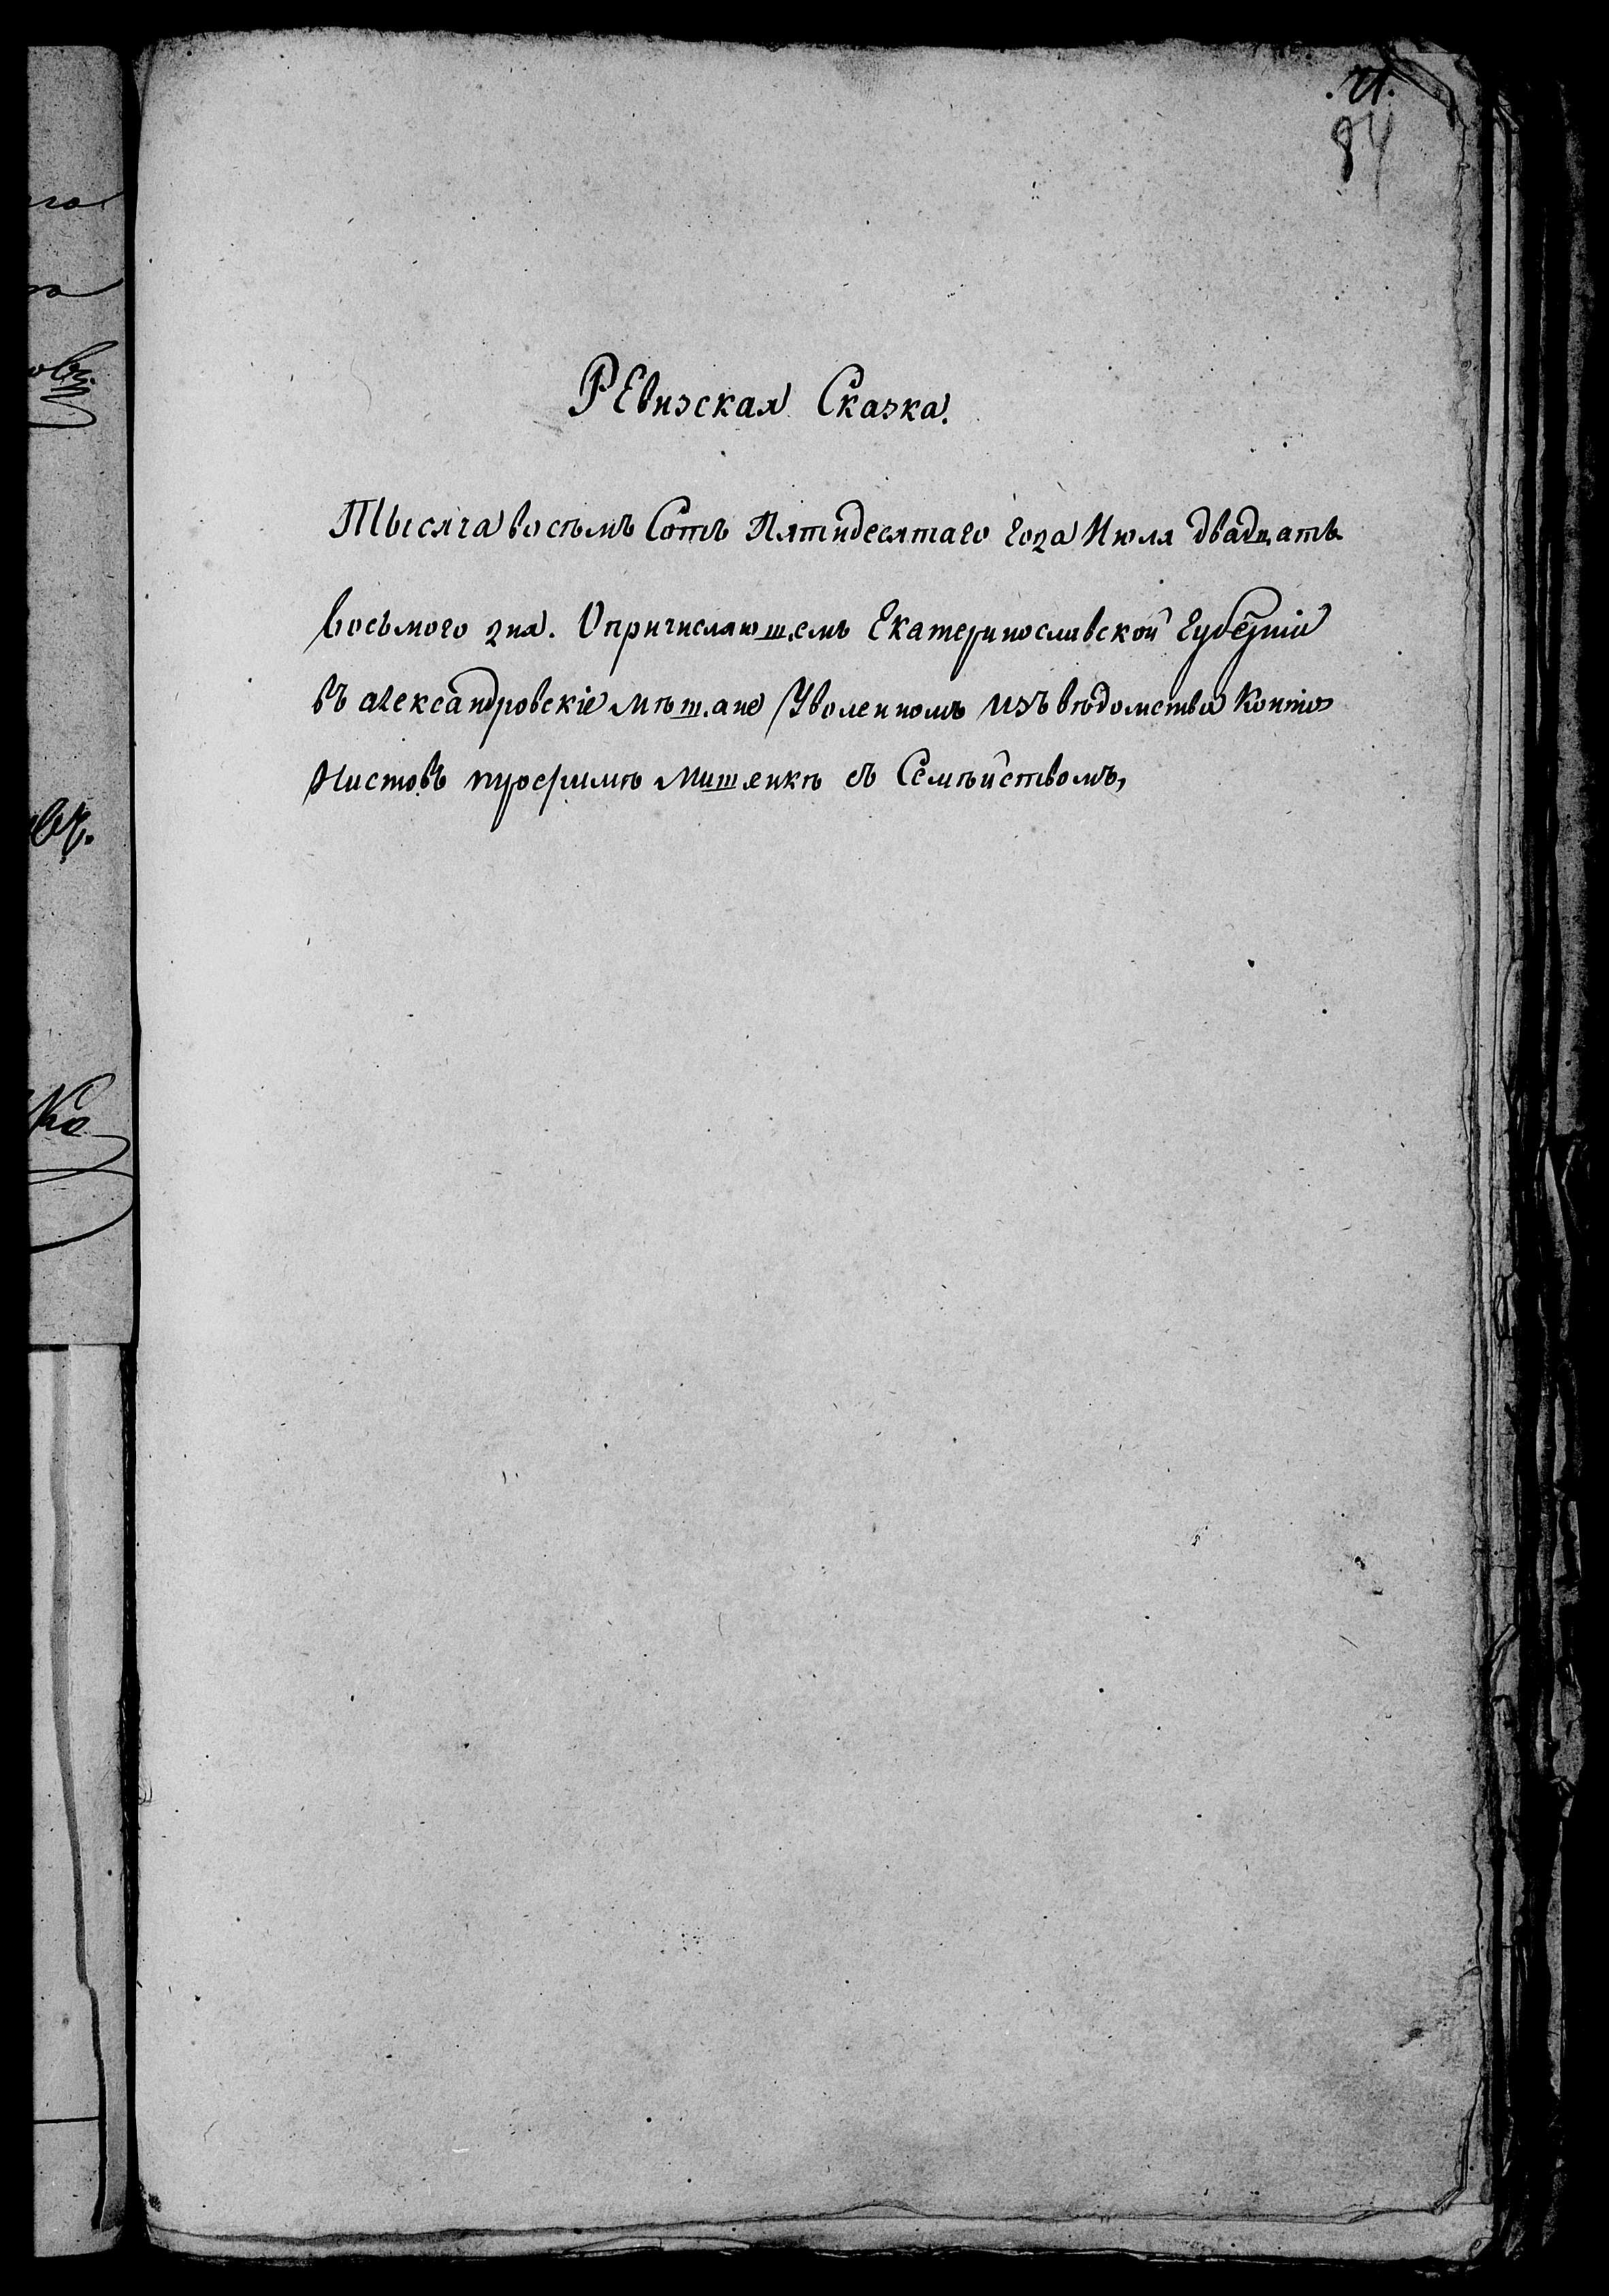 84
РЕвизская Сказка.
Тысяча восѣмъ Сотъ Пятидесятаго года Июля двадцать
восьмого дня. О причисляющемъ Екатеринославской Губерніи
въ александровскіе мѣщане Уволенномъ изъ вѣдомства Канто
Нистовъ трофимѣ Мищенкѣ съ Семѣйствомъ,